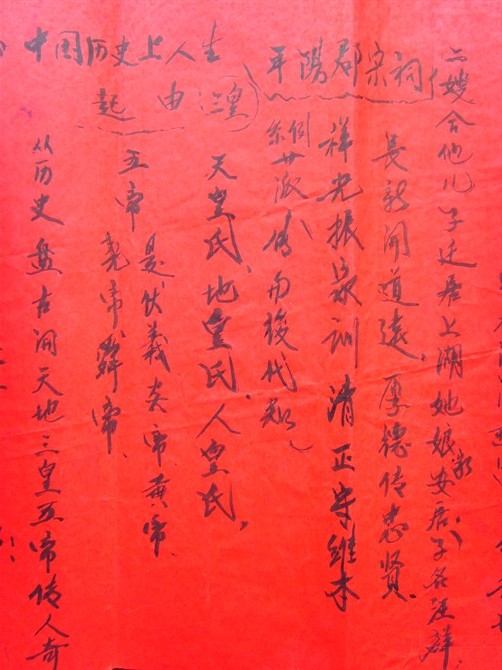 二嫂含他儿子迁居上湖她娘家安居子名
平陽郡宗祠
長新開道遠，厚德传忠賢
祥光振家训 清正守维本
系例廿派（传而後代知）
中国历史上人生
起由（三皇）
天皇氏、地皇氏、人皇氏，
五帝
是伏義炎帝黄帝、
尧帝舜帝、
从历史盘古開天地三皇五帝传人奇